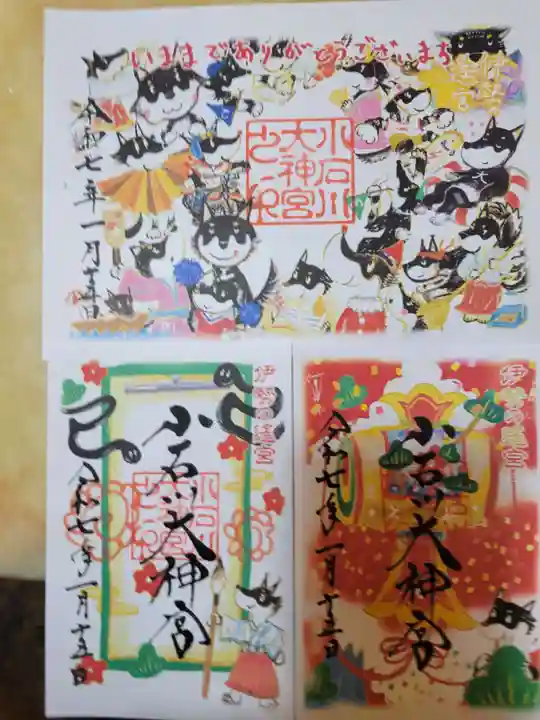 いままでありがとうございまち
伊勢の遥宮
令和七年一月十五日
小石川
大神宮
之印
伊勢の遥宮
巳
小石川大神宮
小石川
大神宮
之印
令和七年一月十五日
伊勢の遥宮
小石川大神宮
令和七年一月十五日